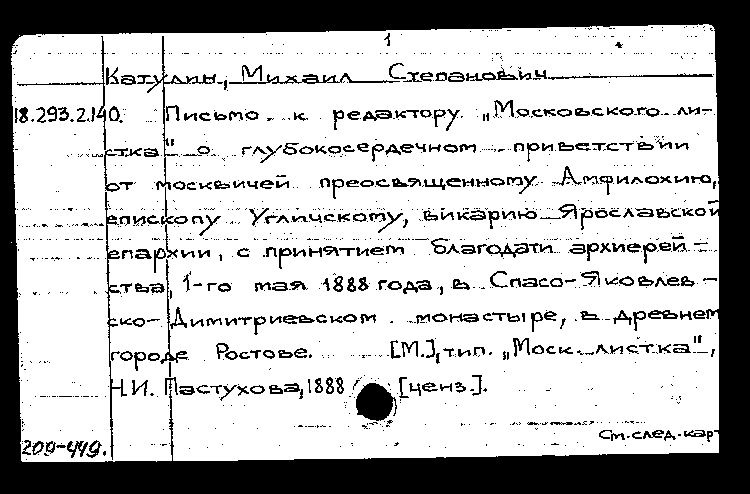 1
Катулин, Михаил Степанович
18.293.2.140. Письмо к редактору „Московского ли-
стка" о глубокосердечном приветствии
от москвичей преосвященному Амфилохию,
епископу Угличскому, викарию Ярославской
епархии, с принятием благодати архиерей-
ства, 1-го мая 1888 года, в Спасо-Яковлев-
ско-Димитриевском монастыре, в древнем
городе Ростове. [М.], тип. „Моск. листка",
Н.И. Пастухова, 1888 [ценз.].
См. след. карт
209-449.